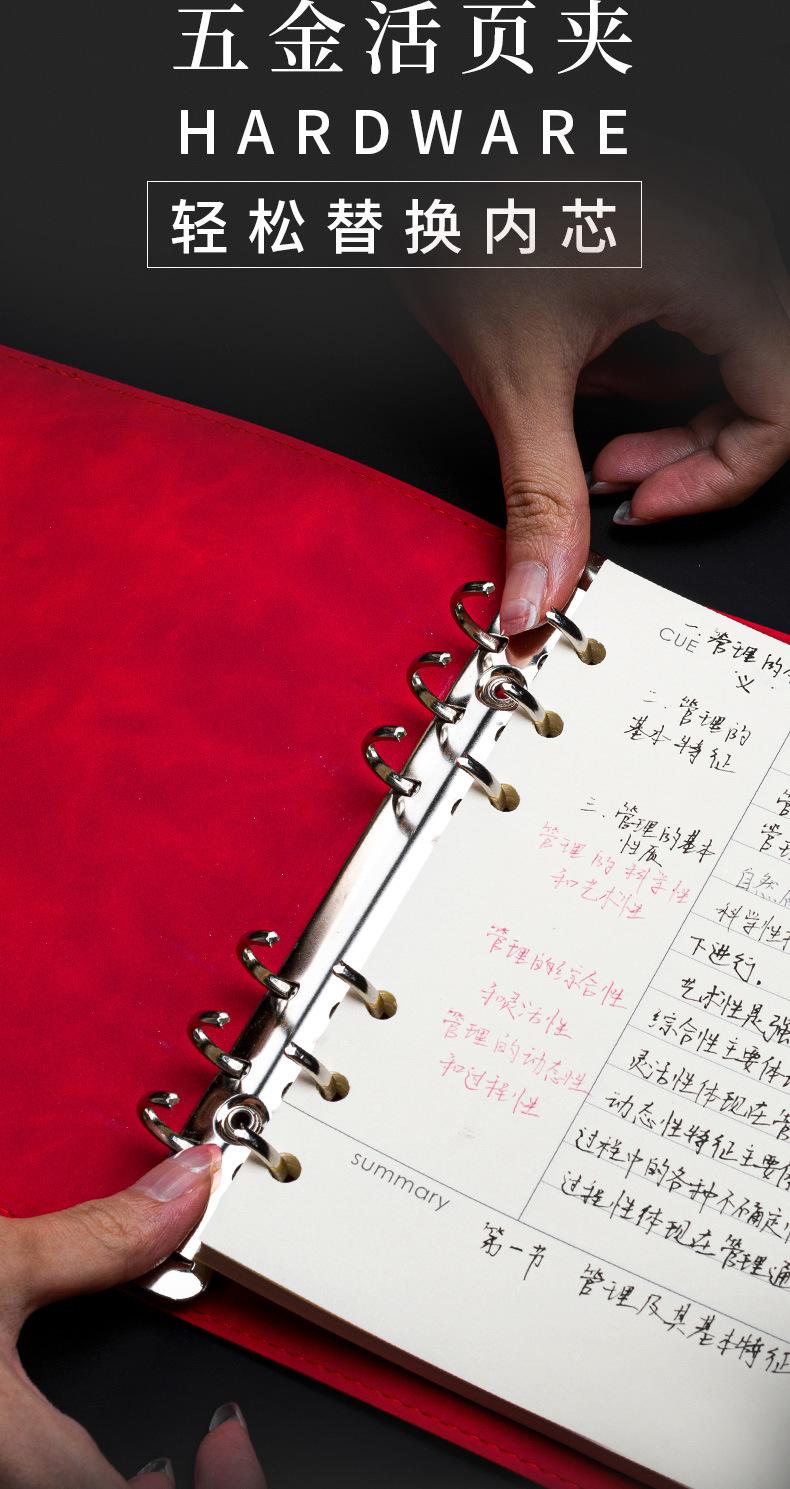 五金活页夹
HARDWARE
轻松替换内芯
CUE
一.管理的
义.
二.管理的
基本特征
三.管理的基本
性质
管理的科学性
和艺术性
管理的综合性
和灵活性
管理的动态性
和过程性
管
管理
自然
科学性
下进行.
艺术性是强
综合性主要体
灵活性体现在管
动态性特征主要体
过程中的各种不确定
过程性体现在管理通
summary
第一节 管理及其基本特征